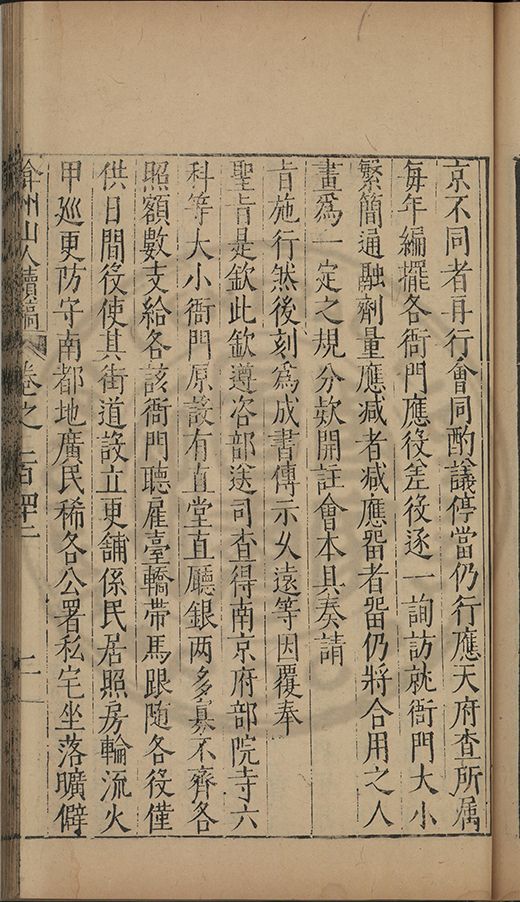 京不同者再行會同酌議停當仍行應天府查所属
每年編擺各衙門應役差役逐一詢訪就衙門大小
繁簡通融劑量應减者减應畱者畱仍將合用之人
畫爲一定之規分欵開註會本具奏請
旨施行然後刻爲成書傳示乆遠等因覆奉
聖旨是欽此欽遵咨部送司查得南京府部院寺六
科等大小衙門原設有直堂直廳銀两多寡不齊各
照額數支給各該衙門聽雇臺轎帶馬跟隨各役僅
供日間役使其街道設立更舖係民居照房輪流火
甲巡更防守南都地廣民稀各公署私宅坐落曠僻
弇州山人續稿 卷之一百四十二 二